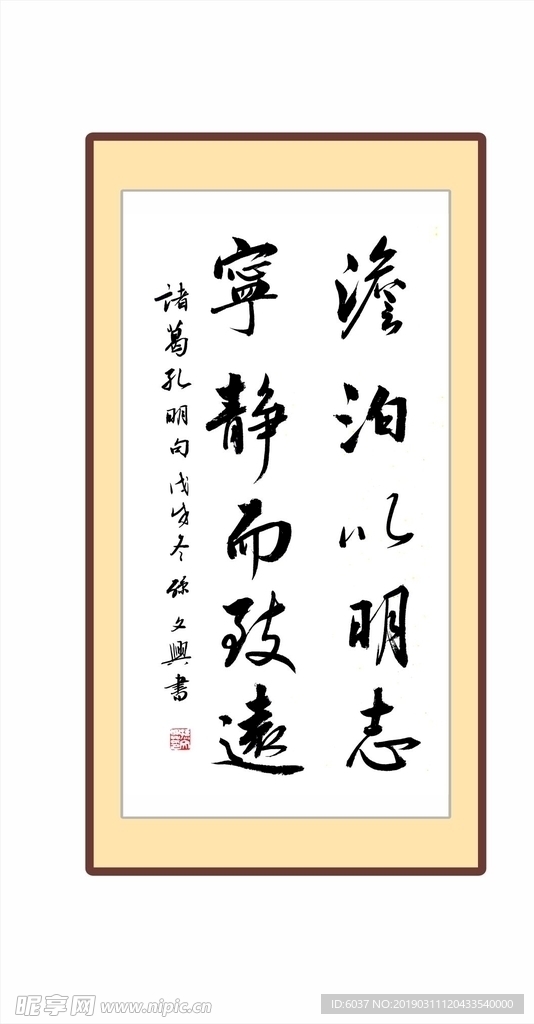 澹泊以明志
寧静而致遠
諸葛孔明句戊戌冬孫文興書
昵享网 www.nipic.cn
ID:6037 NO:20190311120433540000